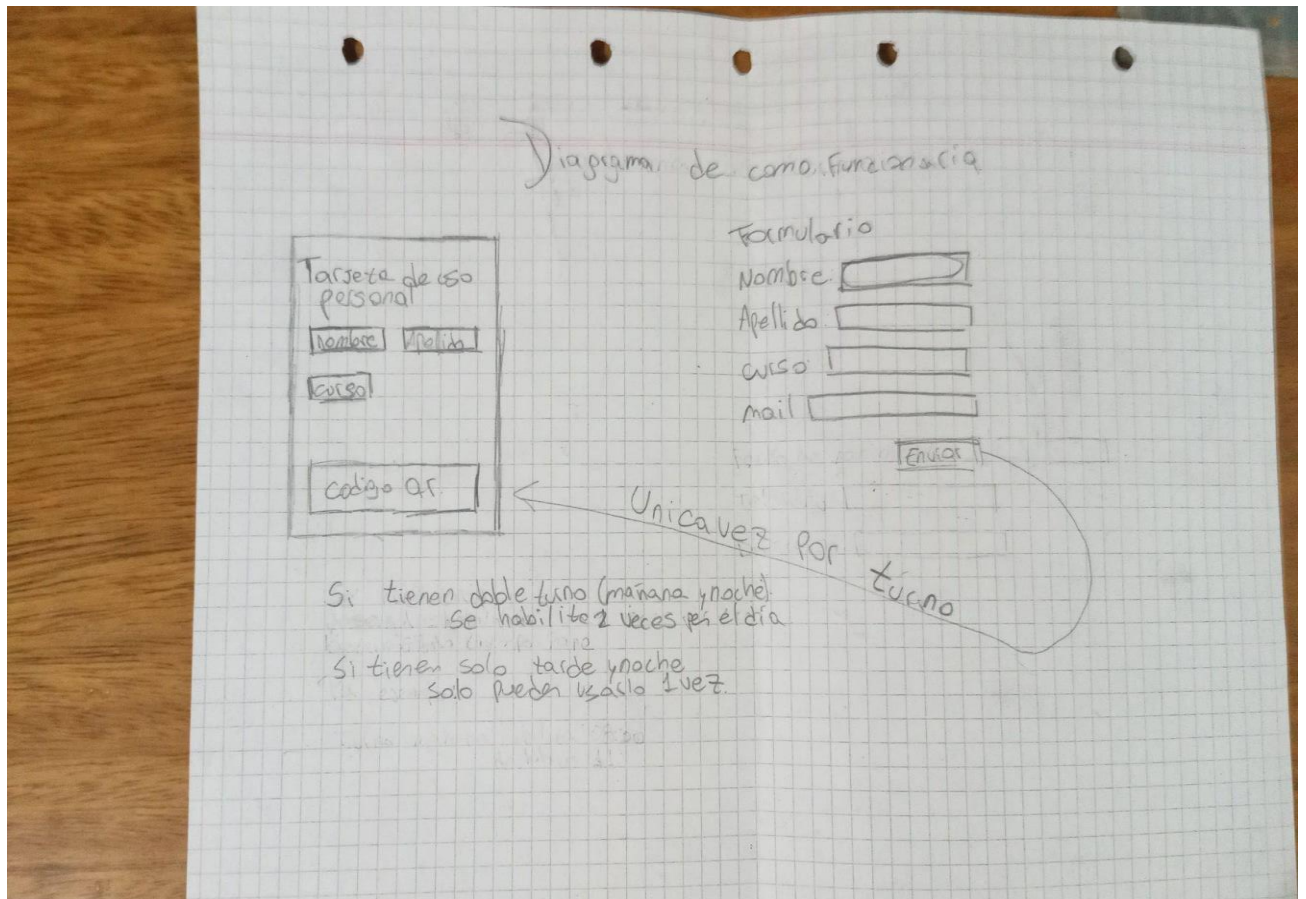 Diagrama de como funcionaria
Tarjeta de uso
personal
nombre Apellido
curso
codigo qr
Formulario
Nombre
Apellido
curso
mail
Enviar
Unica vez por turno
Si tienen doble turno (mañana y noche)
se habilite 2 veces por el día
Si tienen solo tarde y noche
solo pueden usarlo 1 vez.